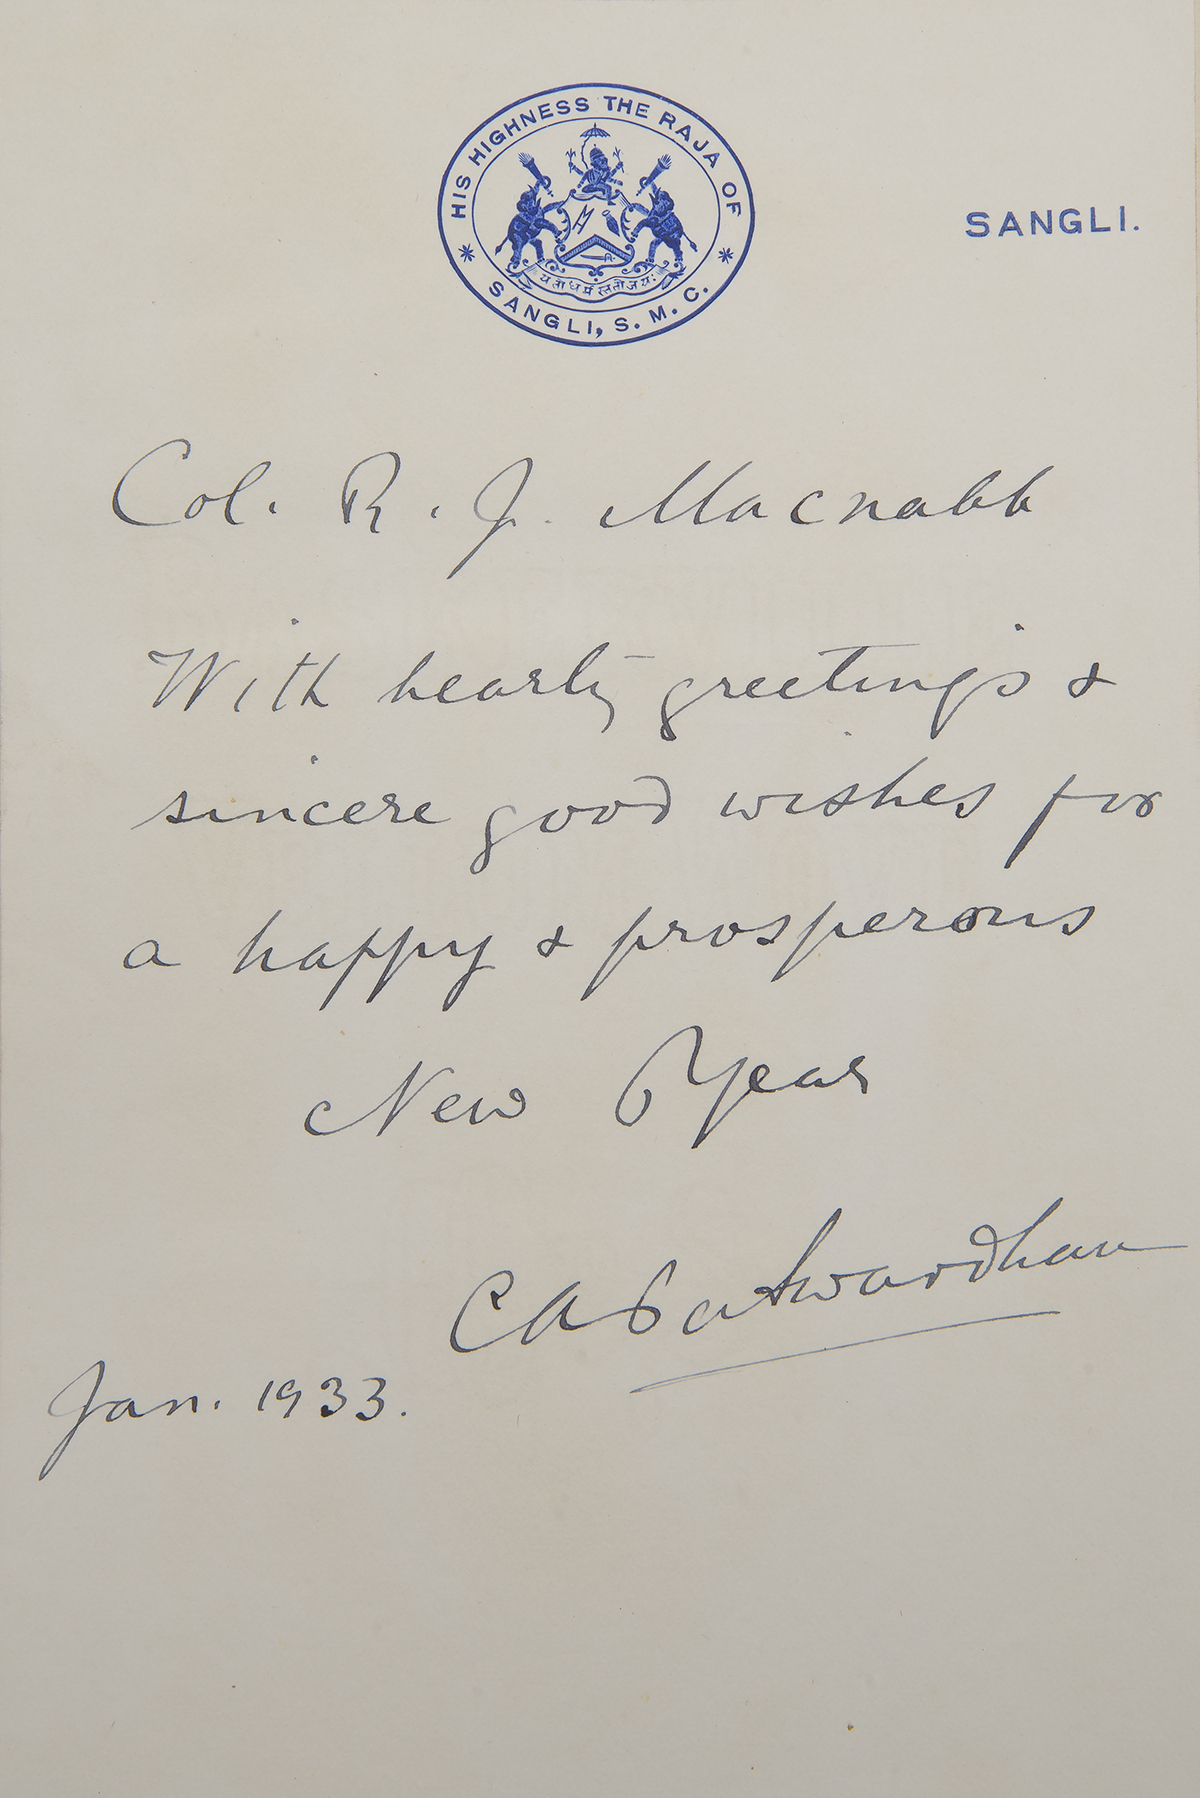 HIS HIGHNESS THE RAJA OF
SANGLI, S. M. C.
यतो धर्मस्ततो जयः
SANGLI.
Col. R. J. Macnabb
With hearty greetings &
sincere good wishes for
a happy & prosperous
New Year
C A Patwardhan
Jan. 1933.